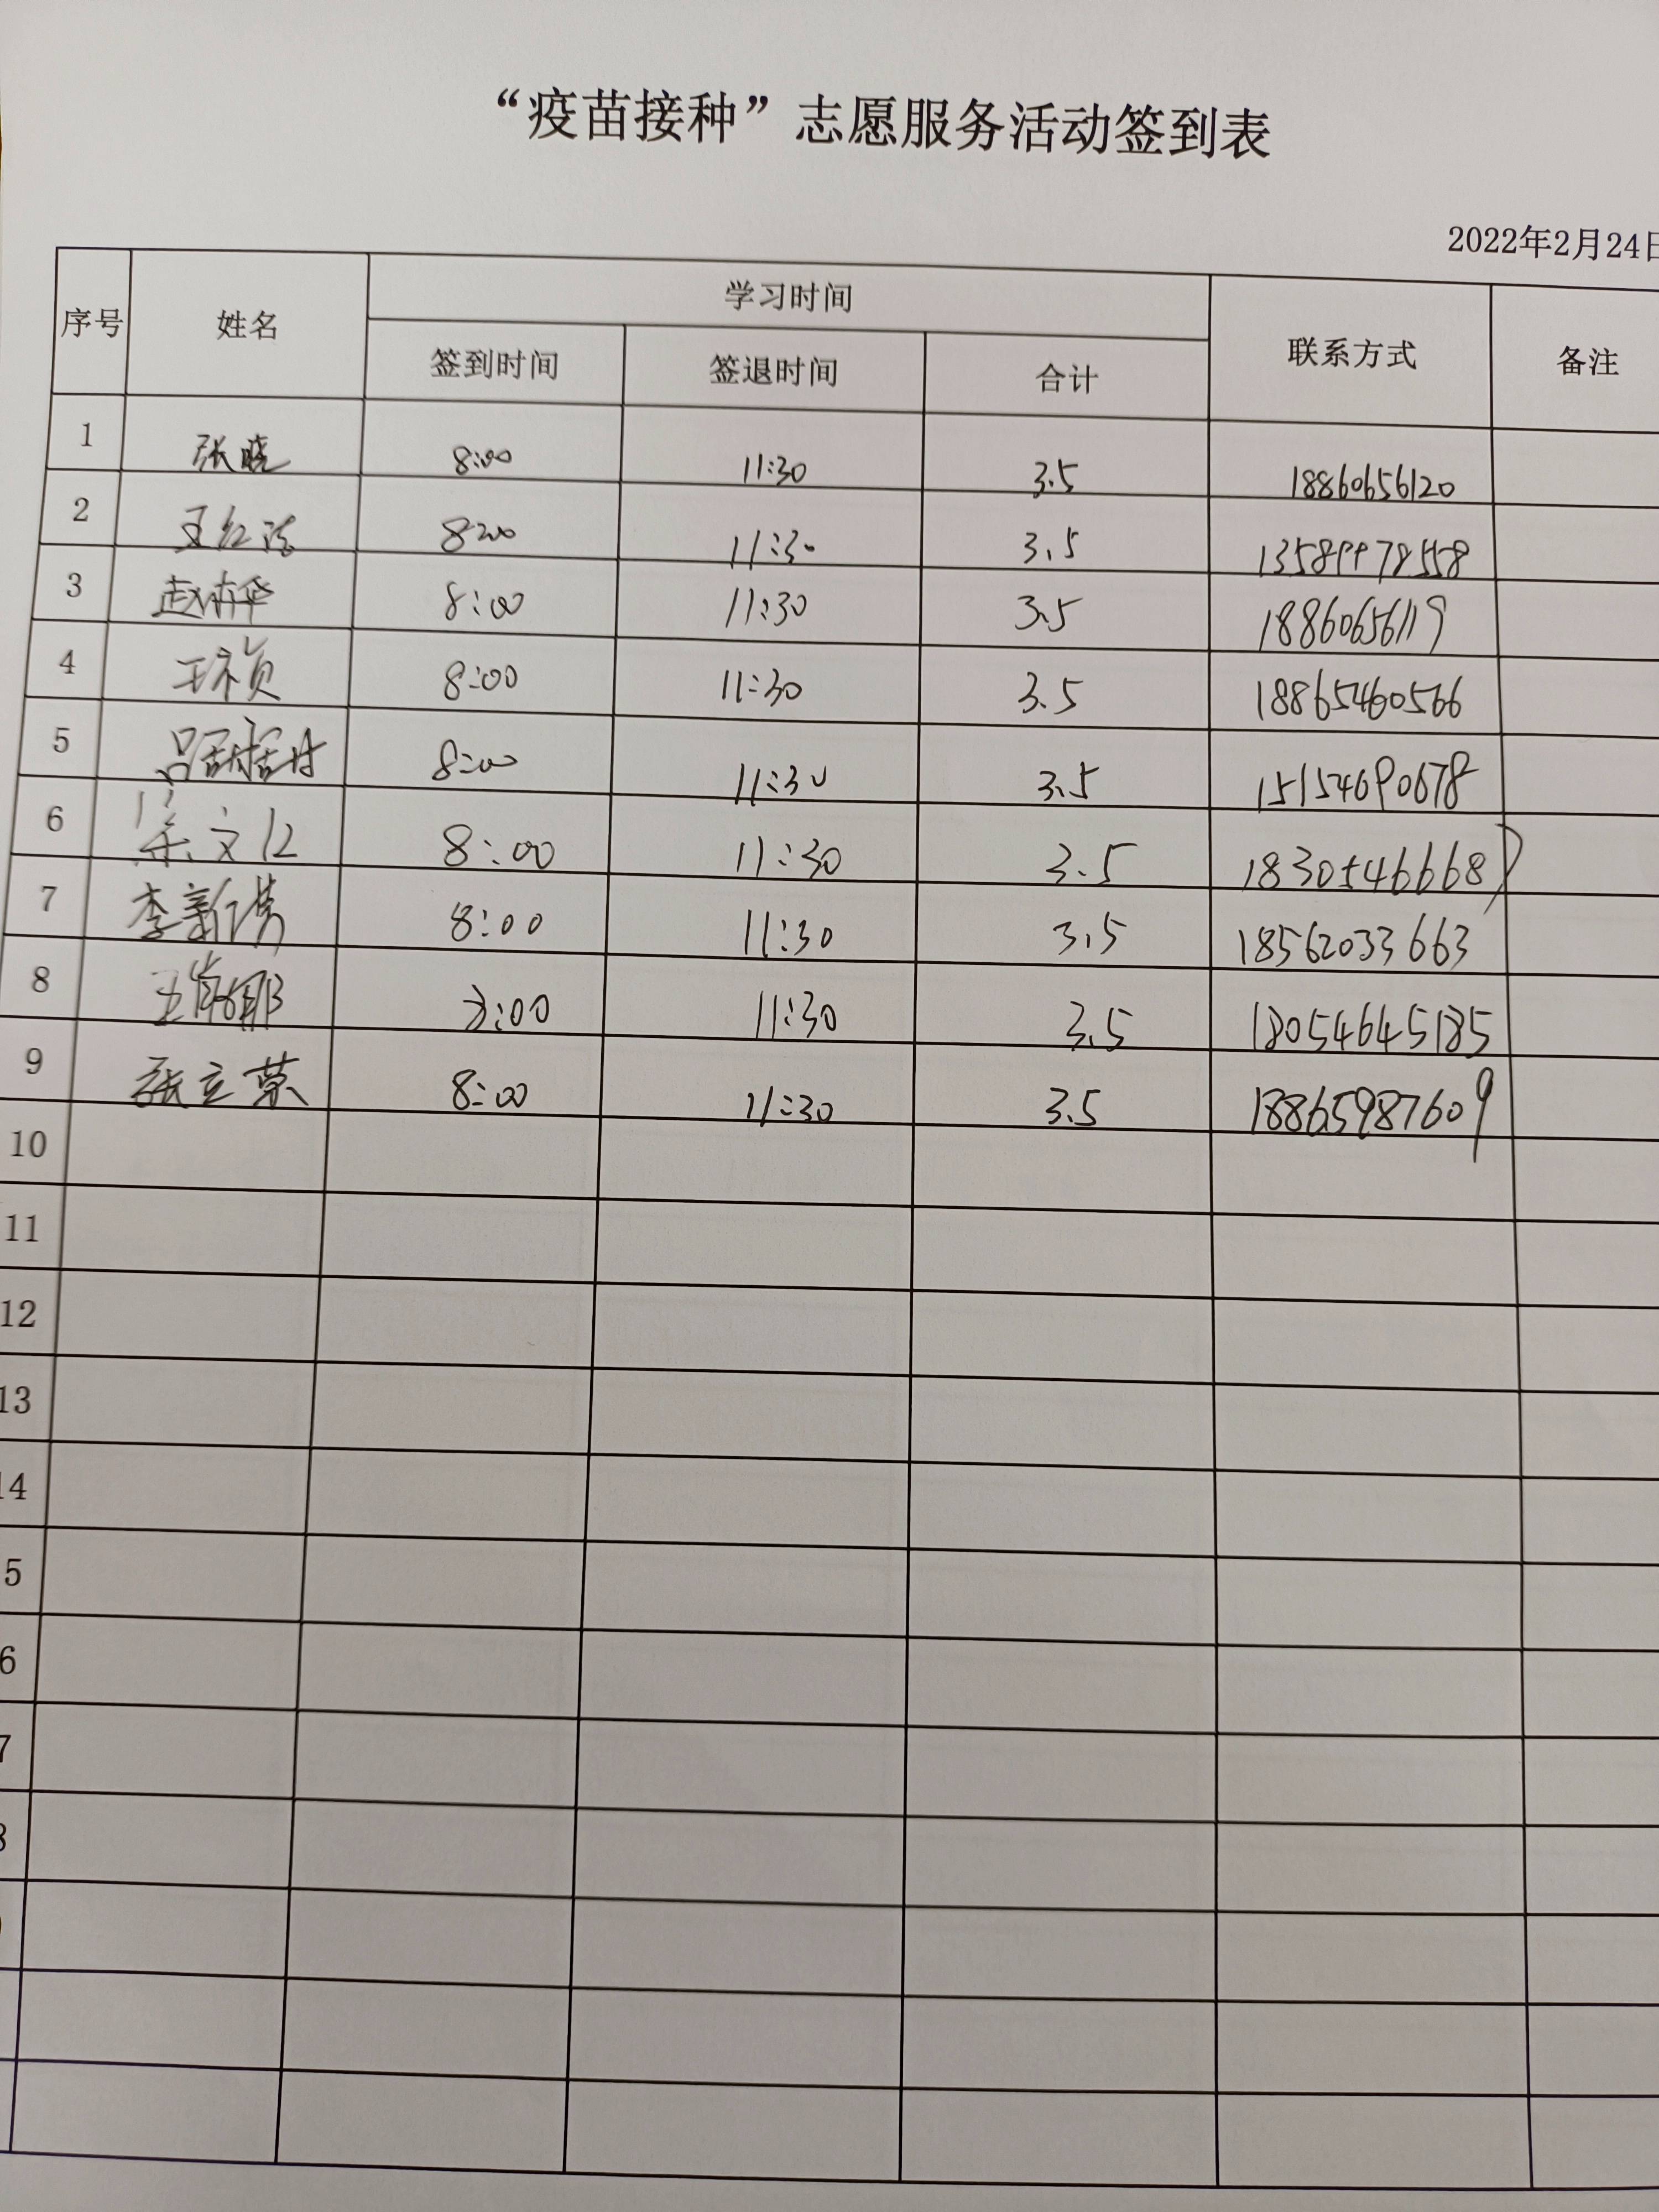 “疫苗接种”志愿服务活动签到表
2022年2月24日
序号 姓名 学习时间 联系方式 备注
签到时间 签退时间 合计
1 张晓 8:00 11:30 3.5 18860656120
2 王红 8:00 11:30 3.5
3 赵 华 8:00 11:30 3.5 18860656119
4 王 贞 8:00 11:30 3.5 18865460566
5 吕 8:00 11:30 3.5 15154690678
6 文 8:00 11:30 3.5 18305466687
7 李新 8:00 11:30 3.5 18562033663
8 王 8:00 11:30 3.5 18054645185
9 张立荣 8:00 11:30 3.5 18865987609
10
11
12
13
14
5
6
7
8